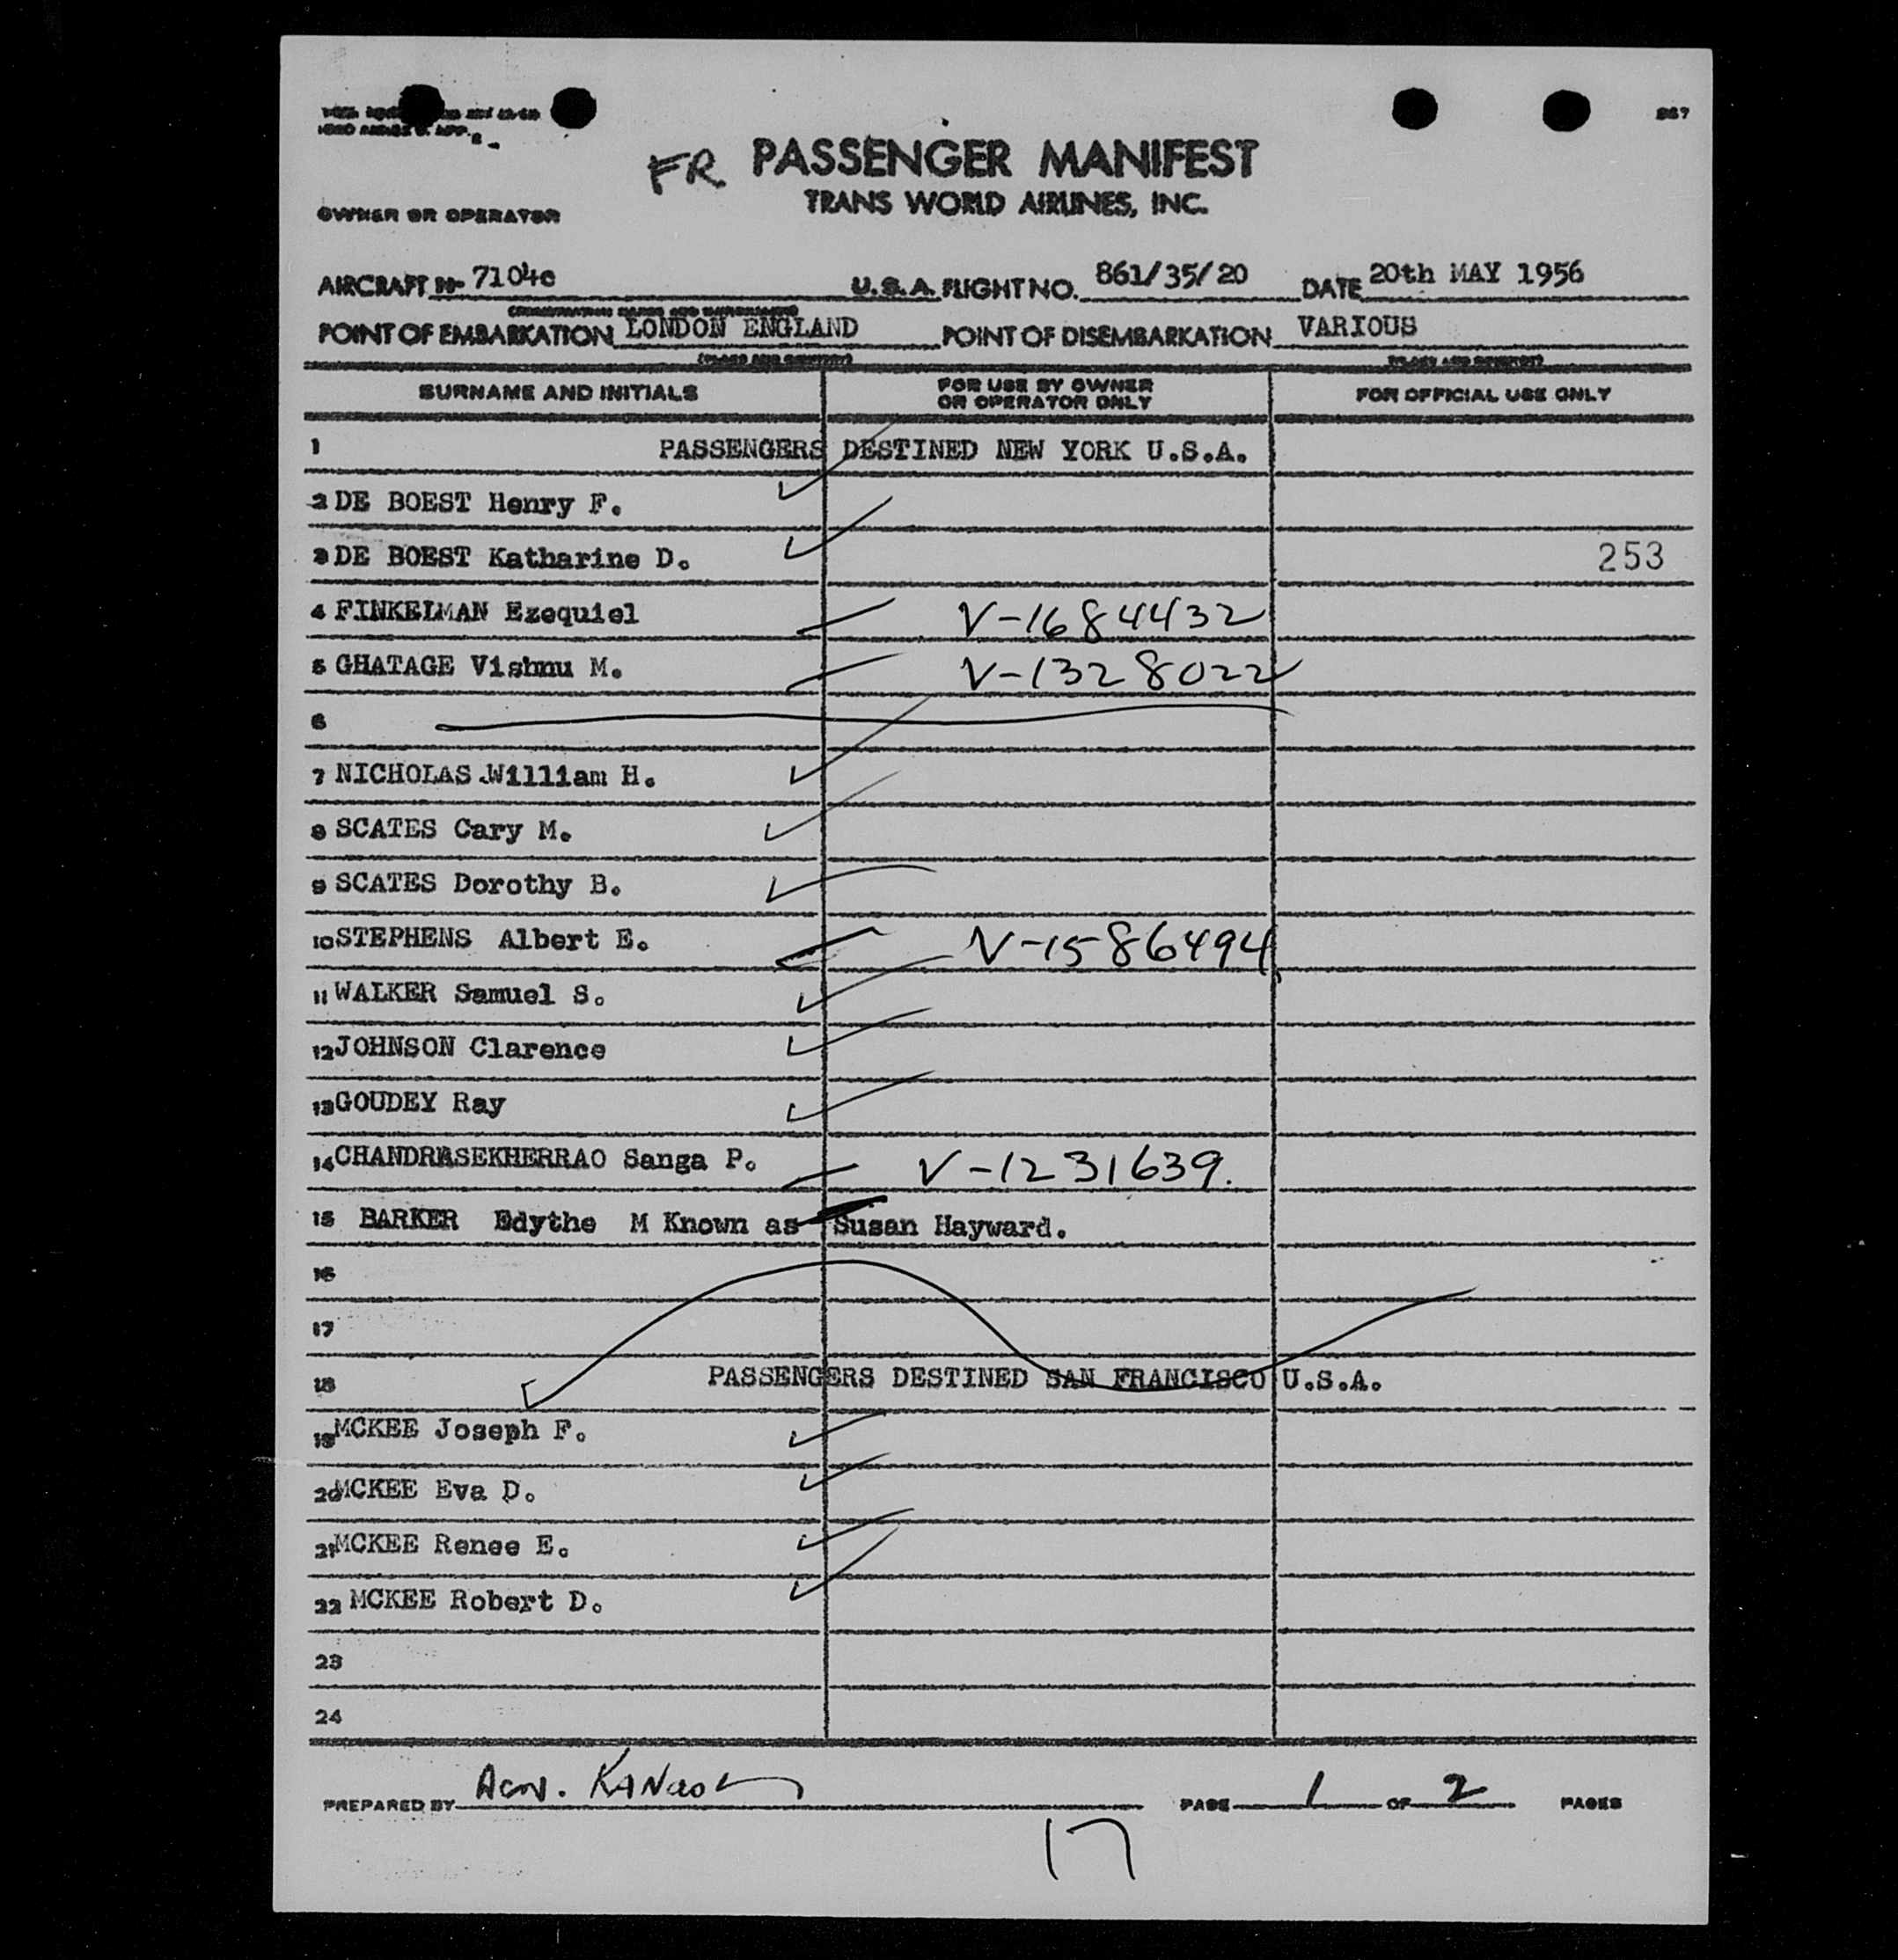 267
FR. PASSENGER MANIFEST
TRANS WORLD AIRLINES, INC.
OWNER OR OPERATOR
AIRCRAFT No 7104c U.S.A. FLIGHT NO. 861/35/20 DATE 20th MAY 1956
POINT OF EMBARKATION LONDON ENGLAND POINT OF DISEMBARKATION VARIOUS
(PLACE AND COUNTRY) (PLACE AND COUNTRY)
SURNAME AND INITIALS FOR USE BY OWNER OR OPERATOR ONLY FOR OFFICIAL USE ONLY
1 PASSENGERS DESTINED NEW YORK U.S.A.
2 DE BOEST Henry F.
3 DE BOEST Katharine D. 253
4 FINKELMAN Ezequiel V-1684432
5 GHATAGE Vishnu M. V-1328022
6
7 NICHOLAS William H.
8 SCATES Cary M.
9 SCATES Dorothy B.
10 STEPHENS Albert E. V-1586494
11 WALKER Samuel S.
12 JOHNSON Clarence
13 GOUDEY Ray
14 CHANDRASEKHERRAO Sanga P. V-1231639.
15 BARKER Edythe M Known as Susan Hayward.
16
17
18 PASSENGERS DESTINED SAN FRANCISCO U.S.A.
19 MCKEE Joseph F.
20 MCKEE Eva D.
21 MCKEE Renee E.
22 MCKEE Robert D.
23
24
PREPARED BY PAGE 1 OF 2 PAGES
17